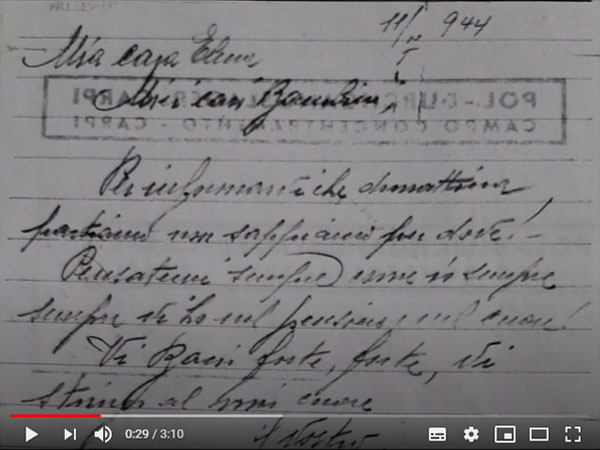 944
Mia cara Elena
Miei cari Bambini,
POL-DURCHG CARPI
CAMPO CONCENTRAMENTO - CARPI
Per informarti che domattina
partiamo non sappiamo per dove! -
Pensatemi sempre come io sempre
sempre vi ho nel pensiero e nel cuore!
Vi Baci forte, forte, vi
stringo al mio cuore
il Vostro
0:29 / 3:10